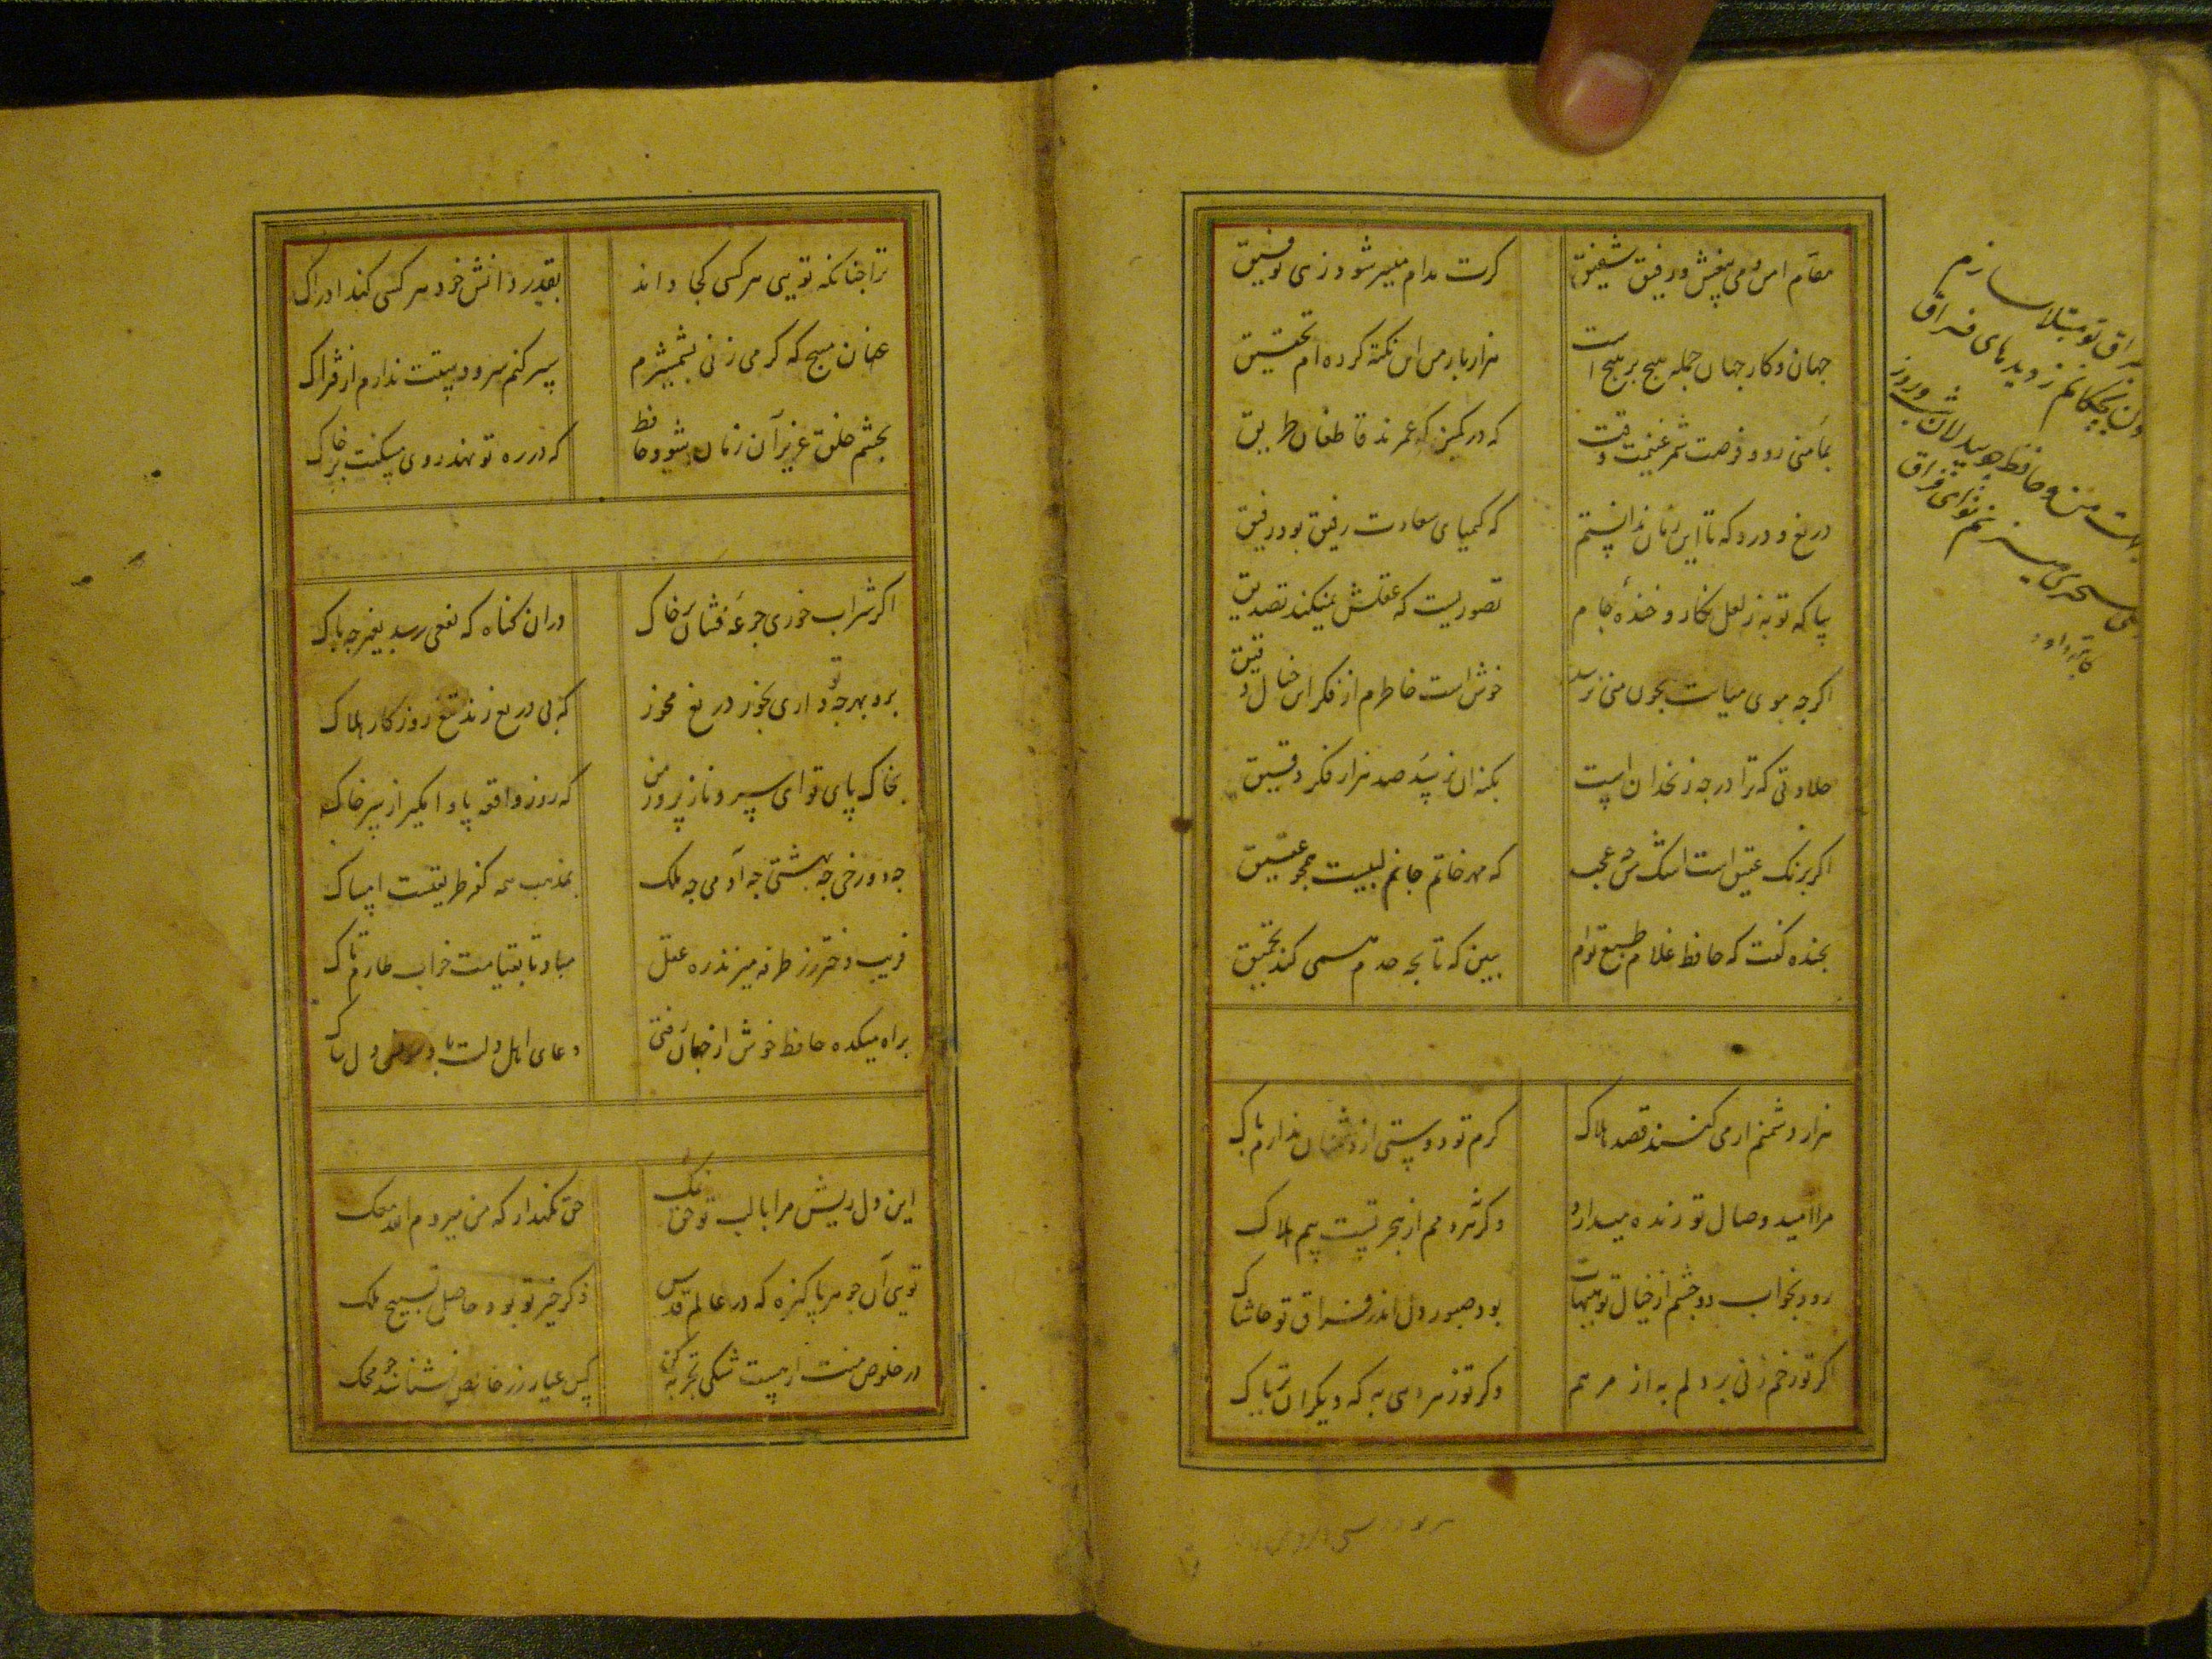 مقام امن و می بیغش و رفیق شفیق
کرت مدام میسر شود زهی توفیق
جهان و کار جهان جمله هیچ بر هیچ است
هزار بار من این نکته کرده ام تحقیق
بمأمنی رو و فرصت شمر غنیمت وقت
که در کمین که عمرند قاطعان طریق
دریغ و درد که تا این زمان ندانستم
که کیمیای سعادت رفیق بود رفیق
بیا که توبه ز لعل نکار و خنده جام
تصوریست که عقلش نمیکند تصدیق
اکرجه موی میانت بجون منی نرسد
خوش است خاطرم از فکر این خیال دقیق
حلاوتی که ترا در جه زنخدان است
بکنه ان نرسد صد هزار فکر دقیق
اکر برنک عقیق است اشک من جه عجب
که مهر خاتم جانم لبیست همجو عقیق
بخنده کفت که حافظ غلام طبع توام
ببین که تا بجه حدم همی کند تحمیق
هزار دشمنم ار می کنند قصد هلاک
کرم تو دوستی از دشمنان ندارم باک
مرا امید وصال تو زنده میدارد
وکرنه هر دمم از هجر تست بیم هلاک
رود بخواب دو جشم از خیال تو هیهات
بود صبور دل اندر فراق تو حاشاک
اکر تو زخم زنی بر دلم به از مرهم
وکر تو زهر دهی به که دیکران تریاک
فراق تو مبتلا سازم
خون بچکانم ز دیدهای فراق
من و حافظ چو بیدلان شب و روز
سحری میزنم نوای فراق
ترا جنانکه تویی هر کسی کجا داند
بقدر دانش خود هر کسی کند ادراک
عنان مبیج که کر می زنی بشمشیرم
سپر کنم سر و دستت ندارم از فتراک
بجشم خلق عزیز آن زمان شود حافظ
که در ره تو نهد روی مسکنت بر خاک
اکر شراب خوری جرعه فشان بر خاک
در ان کناه که نفعی رسد بغیر جه باک
برو بهرجه تو داری بخور دریغ مخور
که بی دریغ زند تیغ روزکار هلاک
بخاک پای تو ای سرو ناز پرور من
که روز واقعه پا وا مکیر از سر خاک
جه دوزخی جه بهشتی جه آدمی جه ملک
بمذهب همه کفر طریقتست امساک
فریب دختر رز طرفه میزند ره عقل
مباد تا بقیامت خراب طارم تاک
براه میکده حافظ خوش از جهان رفتی
دعای اهل دلت باد مونس دل پاک
این دل ریش مرا با لب تو حق نمک
حق نکهدار که من میروم الله معک
تویی آن جوهر پاکیزه که در عالم قدس
ذکر خیر تو بود حاصل تسبیح ملک
در خلوص منت ار هست شکی تجربه کن
کس عیار زر خالص نشناسد جو محک